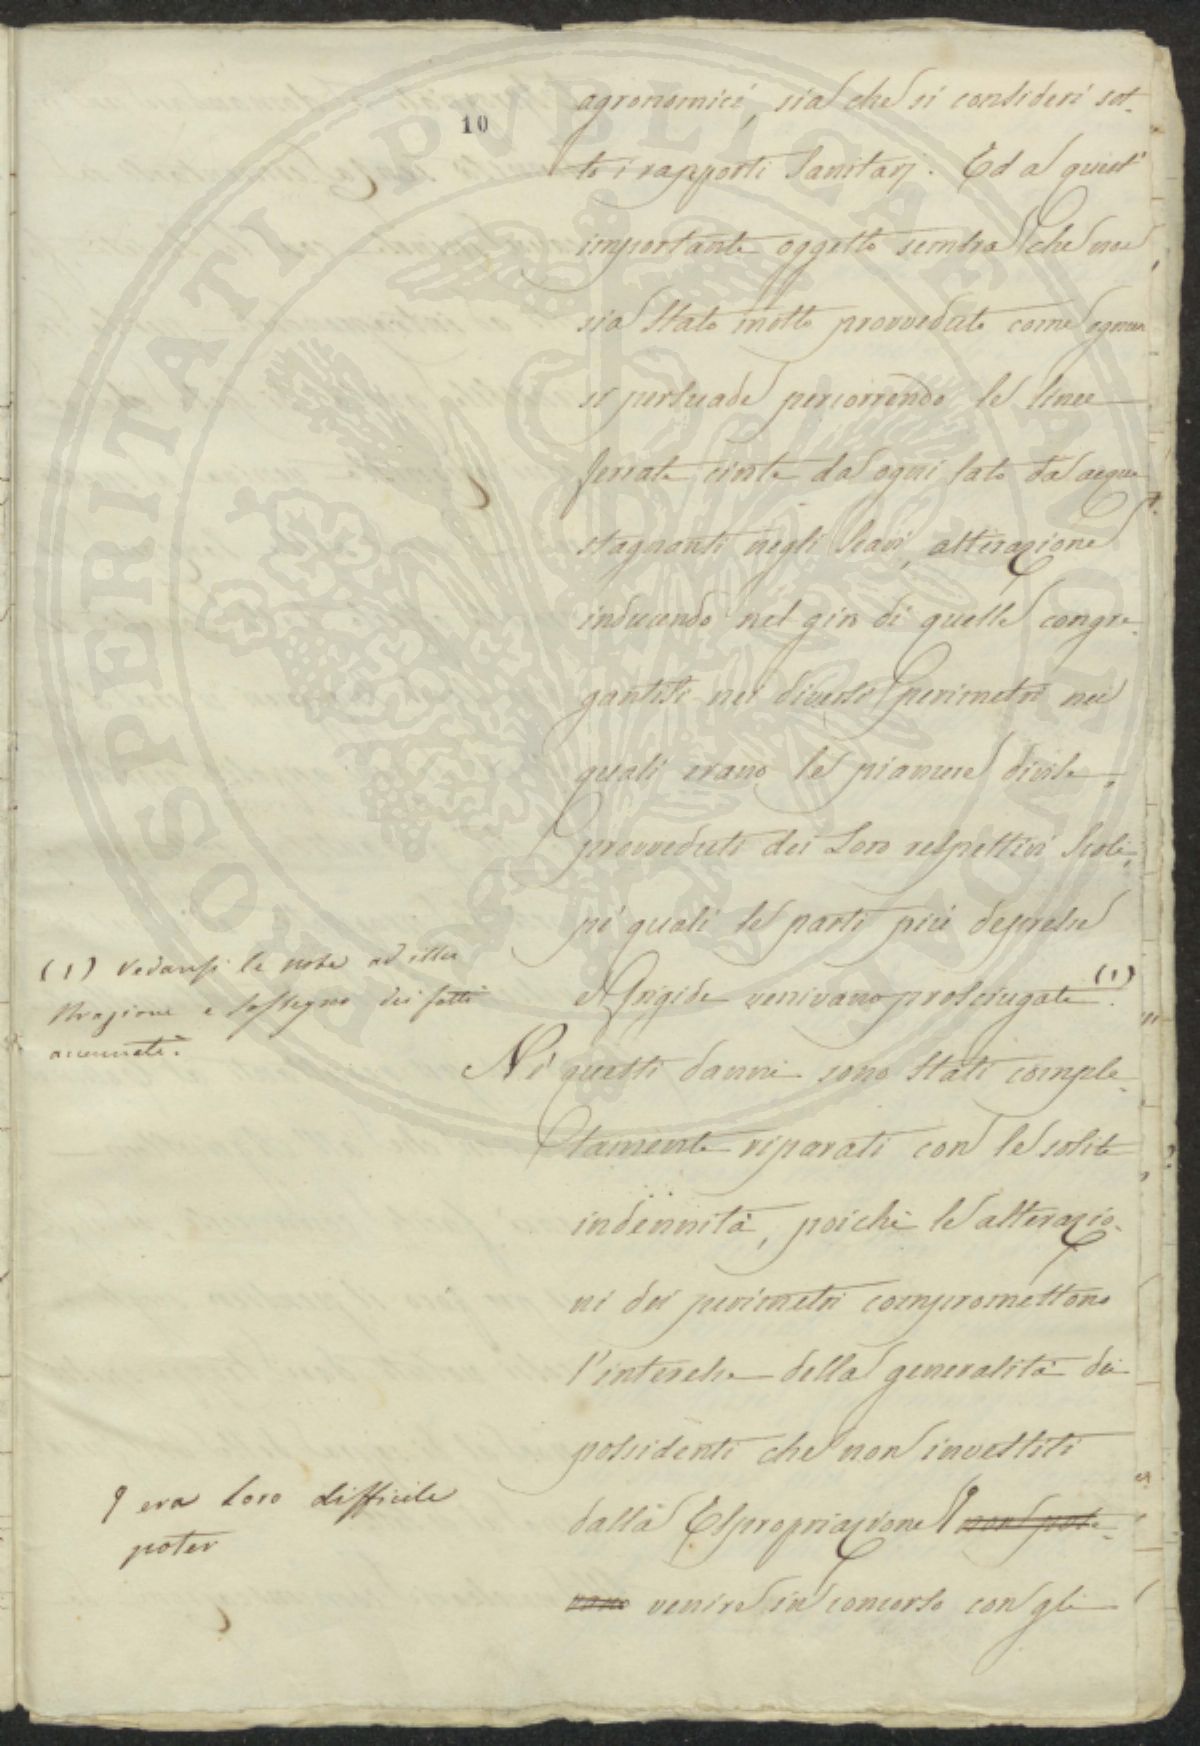 10
agronomici, sia che si consideri sot-
to i rapporti Sanitarj. Ed a quest'
importante oggetto sembra che non
sia stato molto provveduto come ognun
si persuade percorrendo le linee
ferrate cinte da ogni lato da acque
stagnanti negli scavi, alterazione
inducendo nel giro di quelle congre-
gantisi nei diversi perimetri nei
quali erano le pianure divise,
provveduti dei Loro respettivi scoli,
pe' quali le parti più depresse
e frigide venivano prosciugate (1).
Nè questi danni sono stati comple-
tamente riparati con le solite
indennità, poichè le alterazio-
ni dei perimetri compromettono
l'interesse della generalità dei
possidenti che non investiti
dalla Espropriazione non pote-
vano venire in concorso con gli
(1) Vedansi le note ad illu
strazione e sostegno dei fatti
accennati.
era Loro difficile
poter
PROSPERITATI PVBLICAE AVGENDAE